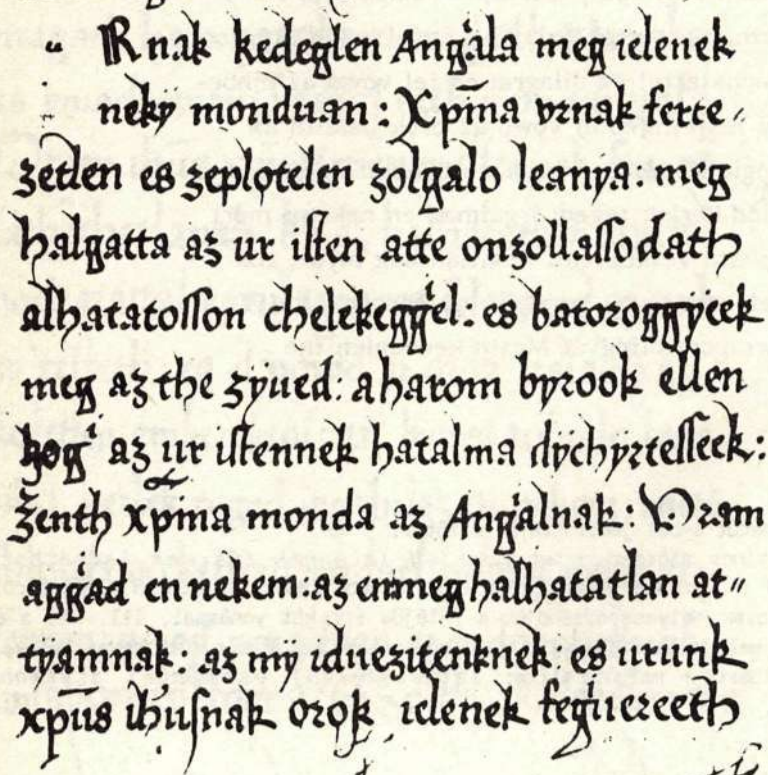 VRnak kedeglen Angͥala meg ielenek
nekÿ monduan : Xpīna vrnak ferte〃
zetlen es zeplo̗telen zolgalo leanÿa : meg
halgatta az ur isten atte onzollassodath
alhatatosson chelekeggͥel : es batoroggÿeek
meg az the zÿued : a harom byrook ellen
hogͥ az ur istennek hatalma dÿchyrtesseek :
Zenth xpīna monda az Angͥalnak : Vram
aggͥad en nekem : az en meg halhatatlan at〃
tyamnak : az mÿ iduezitenknek : es urunk
xpūs ihusnak oro̗k ielenek fegͥuereeth